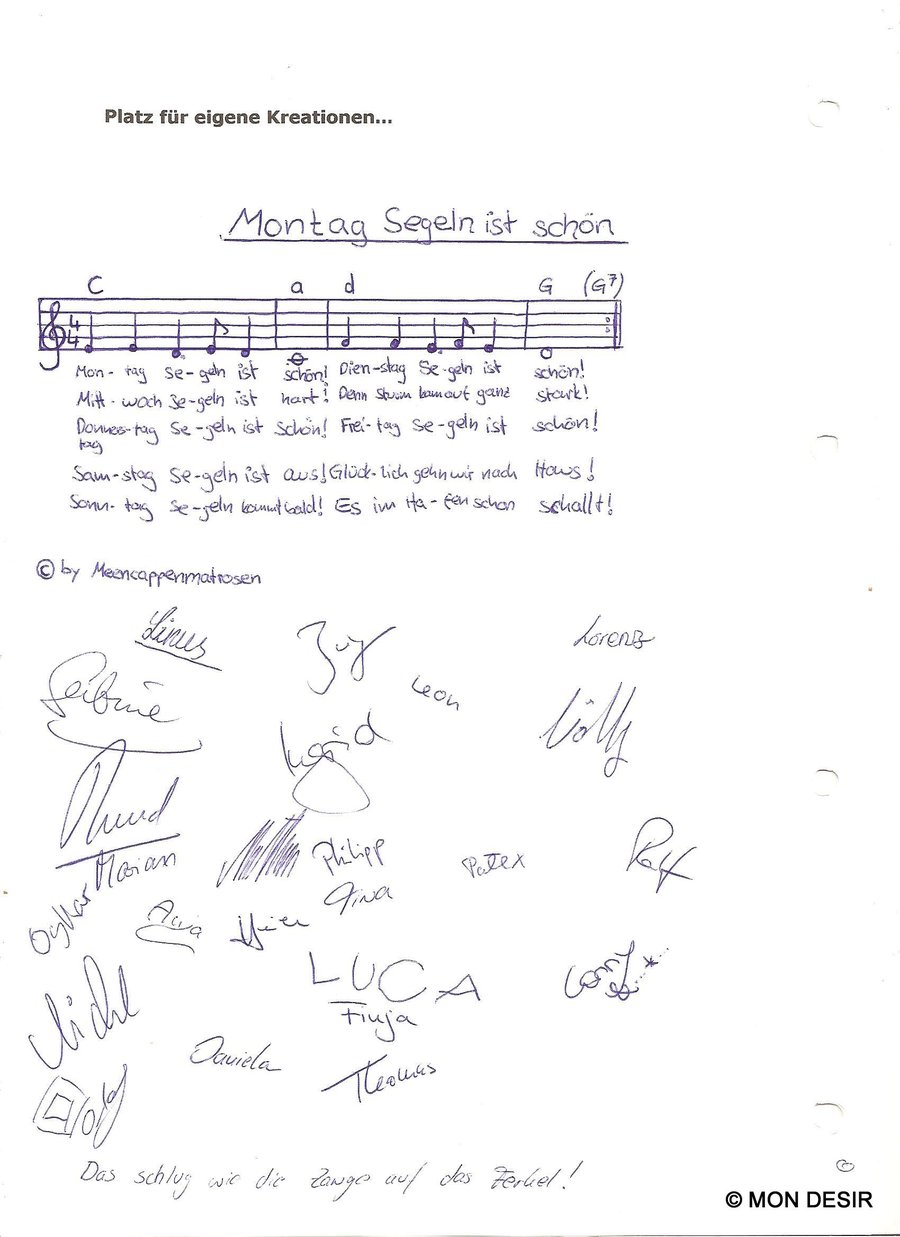 Platz für eigene Kreationen...
Montag Segeln ist schön
C a d G (G7)
4
4
Mon- tag Se- geln ist schön! Dien-stag Se-geln ist schön!
Mitt- woch Se-geln ist hart! Denn Sturm kam auf ganz stark!
Donners-tag Se-geln ist schön! Frei-tag Se-geln ist schön!
tag
Sam-stag Se-geln ist aus! Glück-lich gehn wir nach Haus!
Sonn- tag Se-geln kommt bald! Es im Ha-fen schon schallt!
© by Meencappenmatrosen
Linus
Lorenz
Leon
Ingrid
Marian
Philipp
Pattex
Ralf
Gina
LUCA
Conny
Finja
Daniela
Thomas
Olaf
Das schlug wie die Zange auf das Ferkel!
© MON DESIR